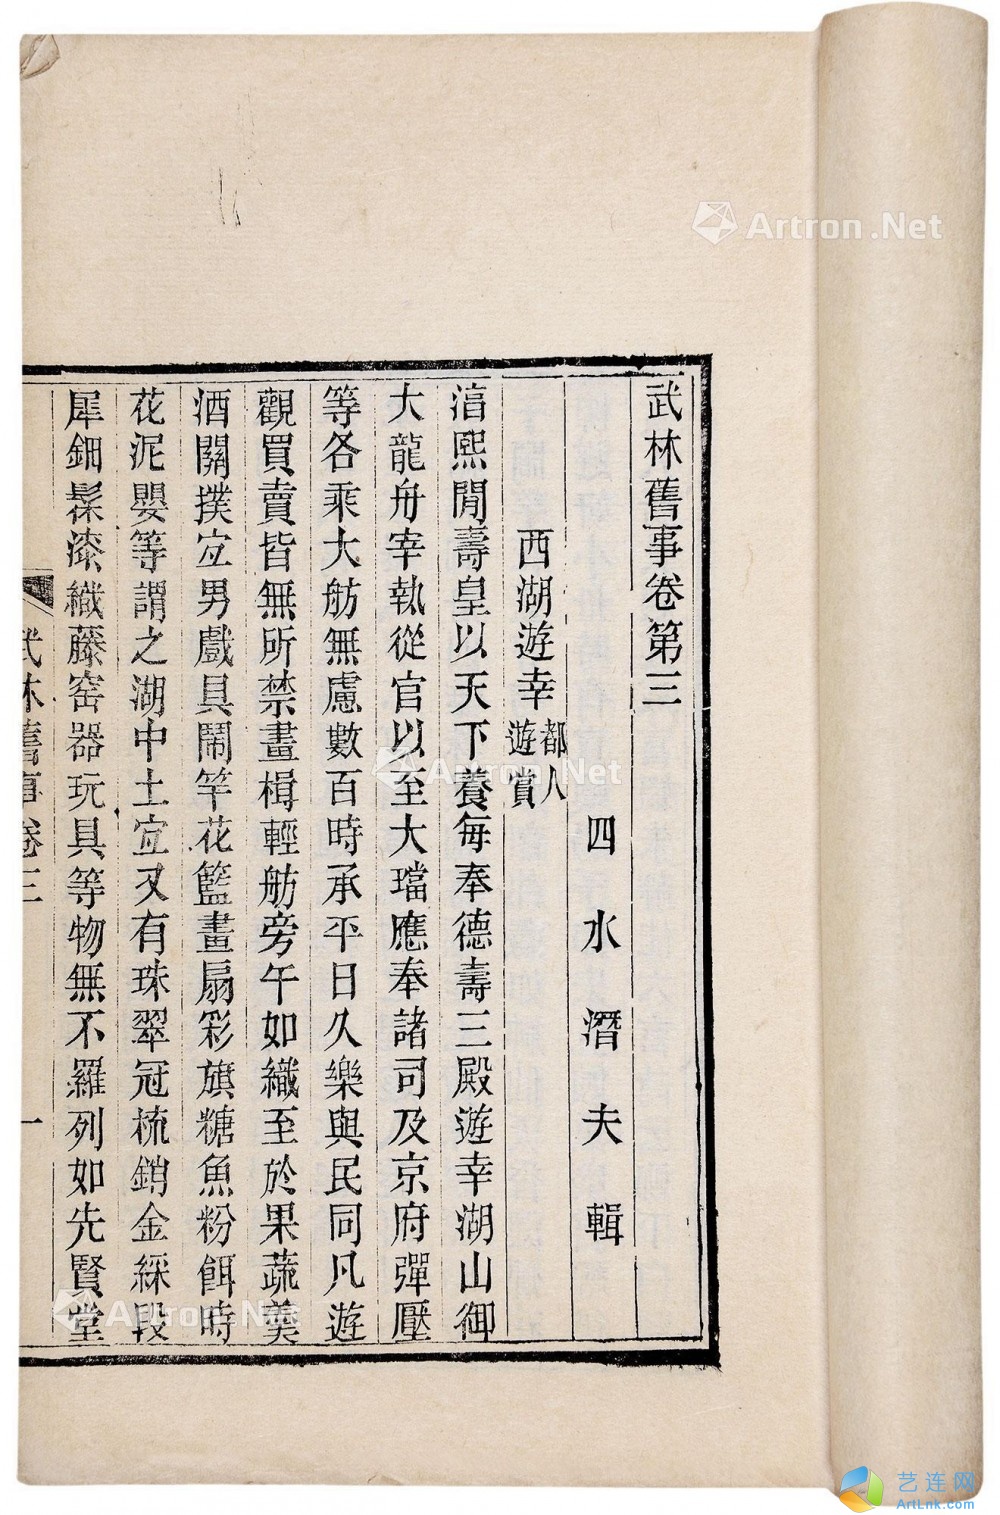 武林舊事卷第三
四水潛夫輯
西湖遊幸 都人遊賞
淳熙間壽皇以天下養每奉德壽三殿遊幸湖山御
大龍舟宰執從官以至大璫應奉諸司及京府彈壓
等各乘大舫無慮數百時承平日久樂與民同凡遊
觀買賣皆無所禁畫楫輕舫旁午如織至於果蔬羹
酒關撲宜男戲具鬧竿花籃畫扇彩旗糖魚粉餌時
花泥嬰等謂之湖中土宜又有珠翠冠梳銷金綵段
犀鈿髹漆織藤窑器玩具等物無不羅列如先賢堂
武林舊事卷三
一
Artron.Net
Artron.Net
Artron.Net
艺连网
ArtLnk.com